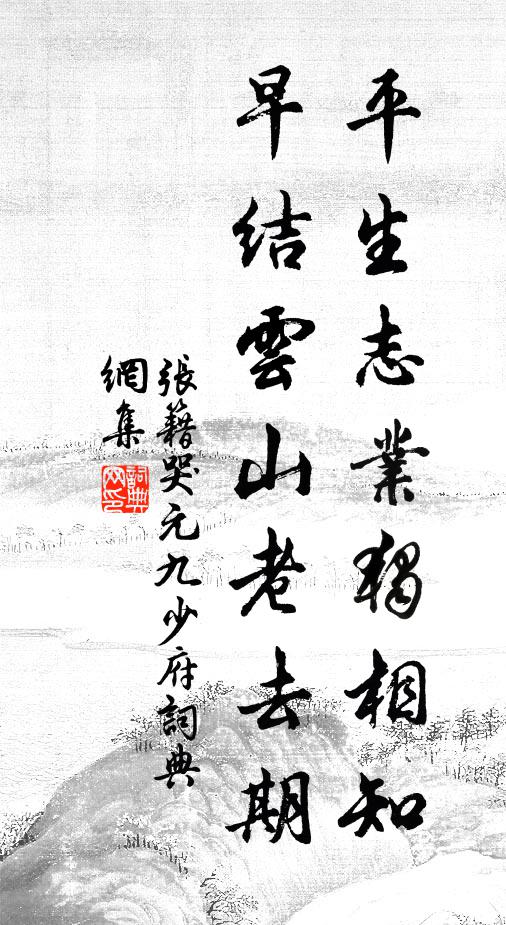 平生志業獨相知
早結雲山老去期
張籍哭元九少府詞典
網集
詞典
网印